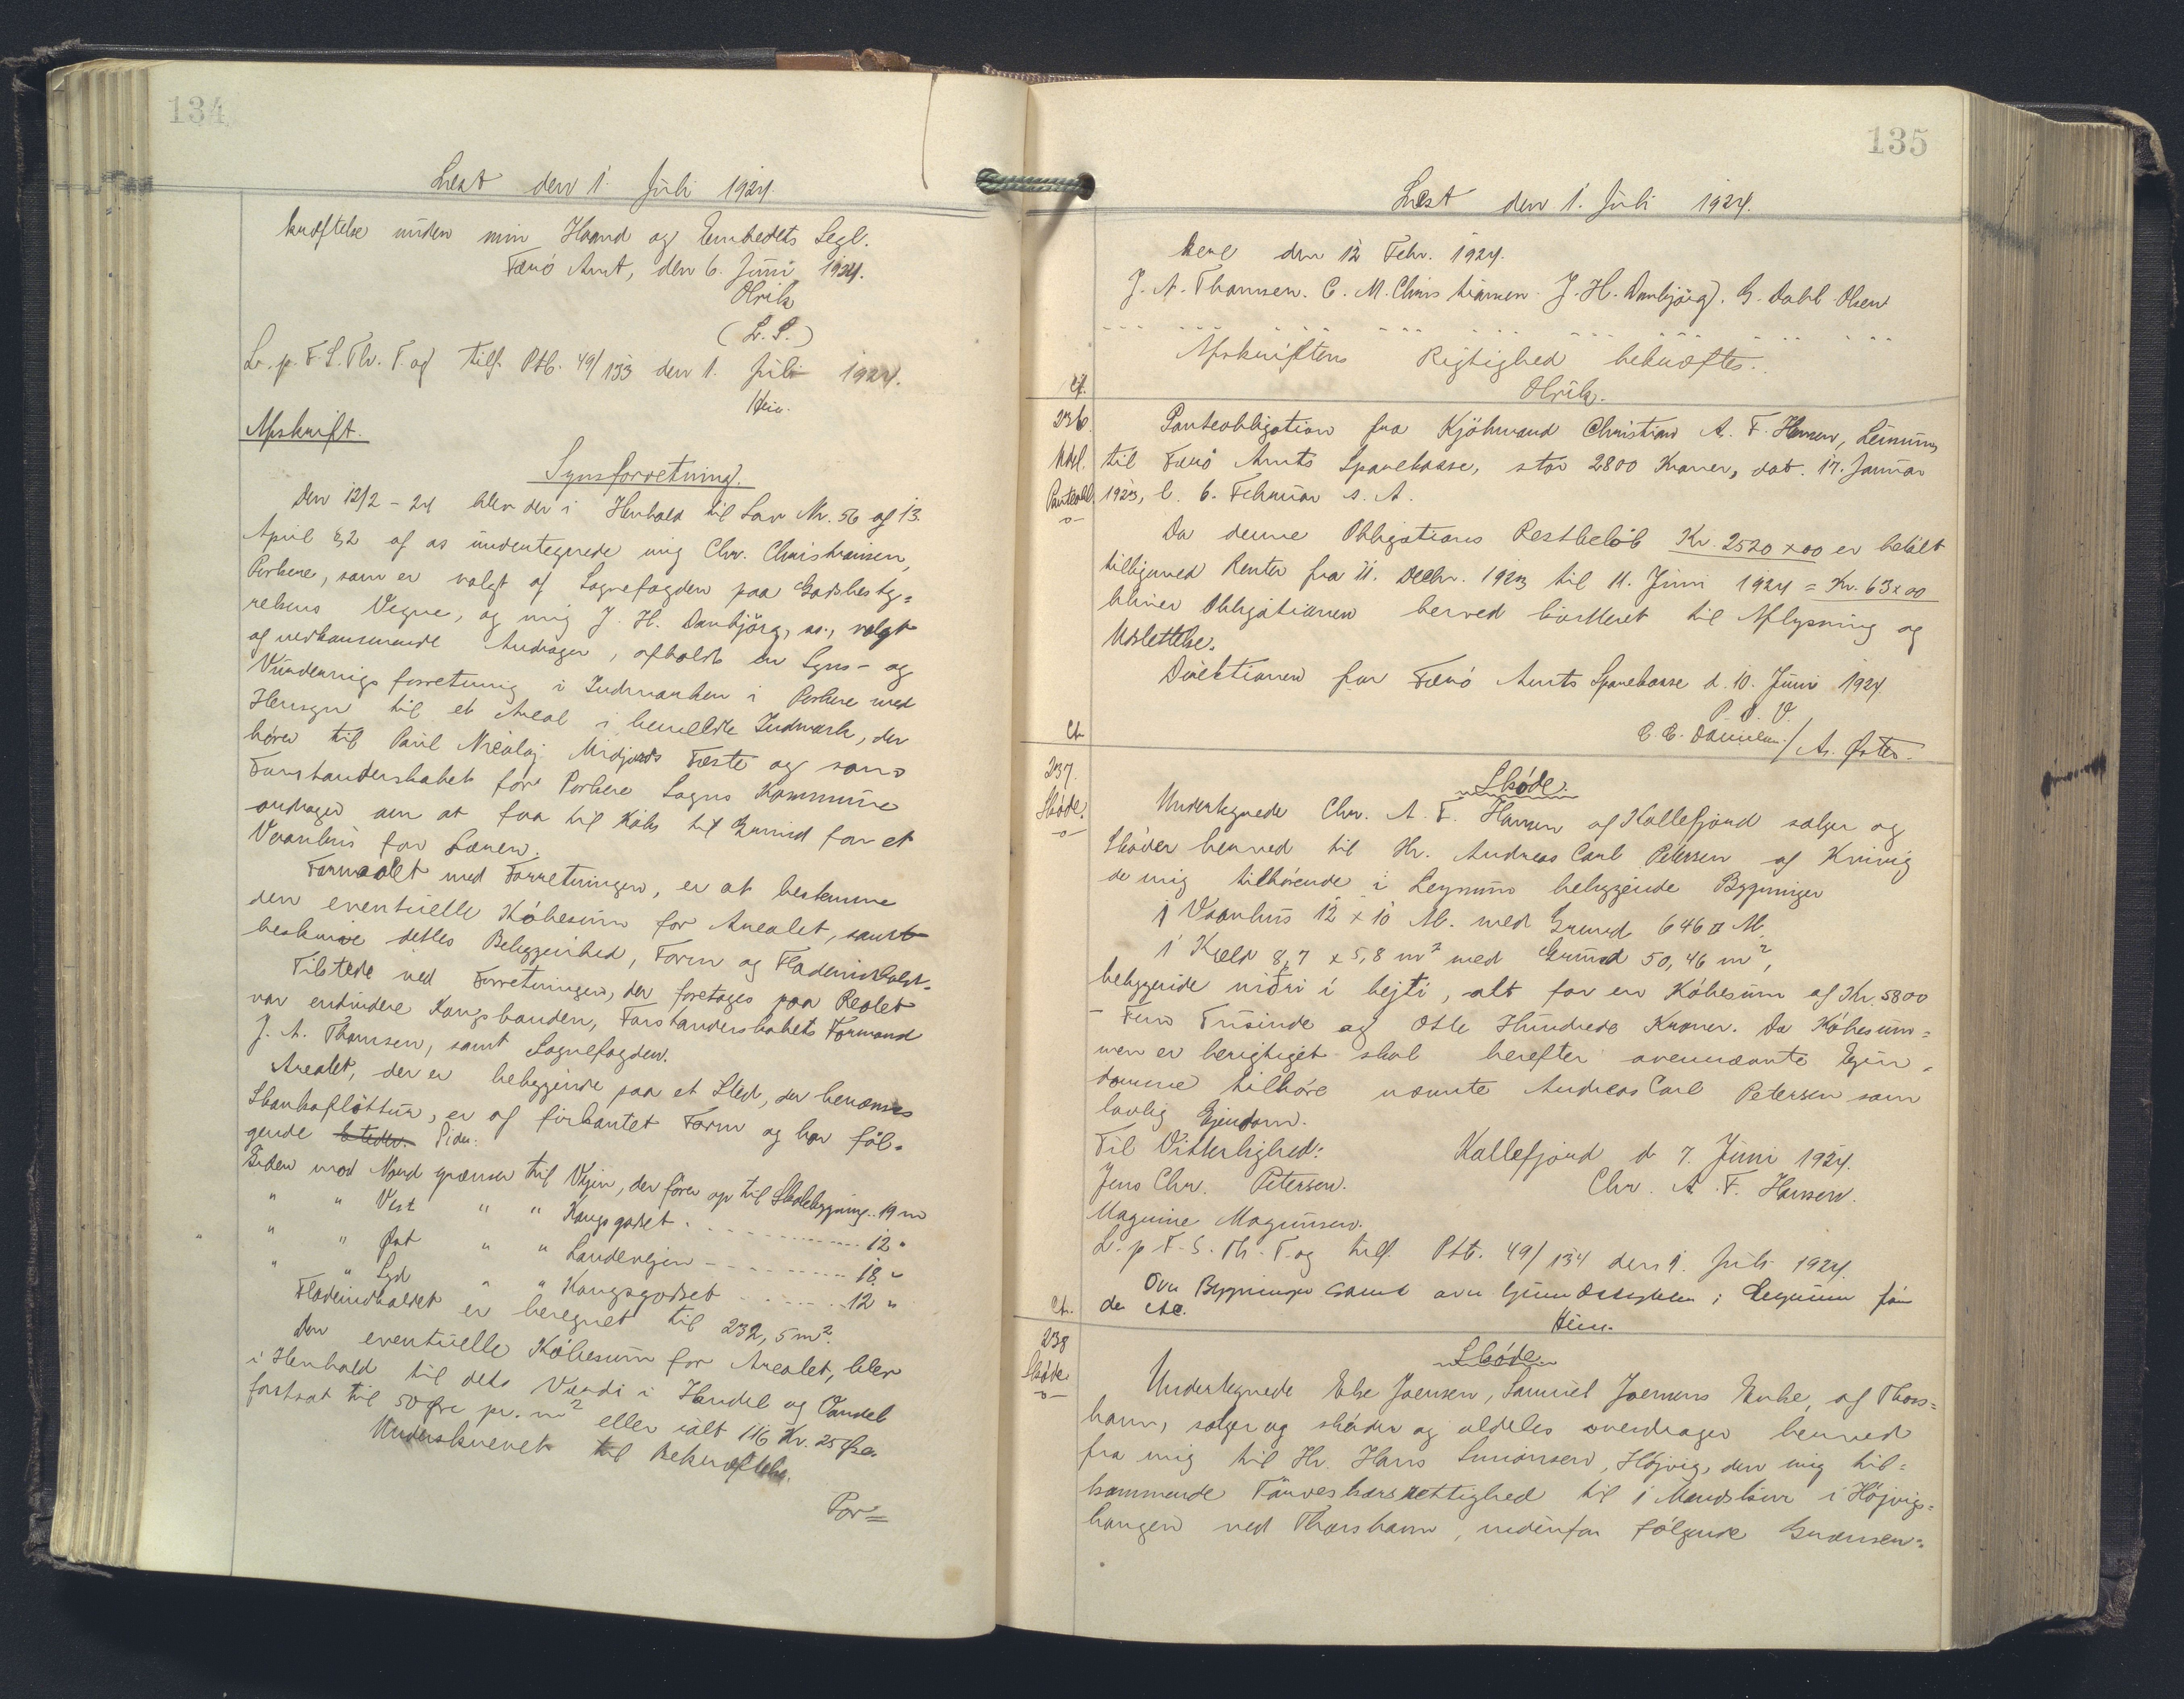 134
Læst den 1. Juli 1924.
kræftelse under min Haand og Embedets Segl.
Færö Amt, den 6. Juni 1924.
Olrik
(L. S.)
L. p. F. S. Th. T. og tilf. Ptb. 49/133 den 1. Juli 1924.
Hein.
Afskrift.
Synsforretning.
Den 12/2 - 24 blev der i Henhold til Lov Nr. 56 af 13.
April 32 af os undertegnede mig Chr. Christiansen,
Porkere, som er valgt af Sognefogden paa Godsbesty=
relsens Vegne, og mig J. H. Danbjörg, ss., valgt
af vedkommende Andrager, afholdt en Syns- og
Vurderingsforretning i Indmarken i Porkere med
Hensyn til et Areal i bemeldte Indmark, der
hörer til Paul Nicolaj Midjords Fæste og som
Forstanderskabet for Porkere Sogns Kommune
andrager om at faa til Köbs til Grund for et
Vaanhus for Læreren.
Formaalet med Forretningen, er at bestemme
den eventuelle Köbesum for Arealet, samt
beskrive dettes Beliggenhed, Form og Fladeindhold.
Tilstede ved Forretningen, der foretages paa Realet
var endvidere Kongsbonden, Forstanderskabets Formand
J. A. Thomsen, samt Sognefogden.
Arealet, der er beliggende paa et Sted, der benævnes
Skankaflöttur, er af firkantet Form og har föl=
gende Steder. Sider:
Siden mod Nord grænser til Vejen, der förer op til Skolebygning.. 19 m
" " Vest " " Kongsgodset . - - - - - - 12 "
" " Öst " " Landevejen - - - - - - - 18 "
" " Syd " " Kongsgodset - - - - - - 12 "
Fladeindholdet er beregnet til 232,5 m².
Den eventuelle Köbesum for Arealet, blev
i Henhold til dets Værdi i Handel og Vandel
fastsat til 50 Øre pr. m² eller ialt 116 Kr. 25 Øre.
Underskrevet til Bekræftelse.
Por=
135
Læst den 1. Juli 1924.
kere den 12 Febr. 1924.
J. A. Thomsen. C. M. Christiansen. J. H. Danbjörg. G. Dahl-Olsen
Afskriftens Rigtighed bekræftes.
Olrik.
Ct.
236.
Udsl.
Panteobl.
Panteobligation fra Kjöbmand Christian A. F. Hansen, Leinum,
til Færö Amts Sparekasse, stor 2800 Kroner, dat. 17. Januar
1923, l. 6. Februar s. A.
Da denne Obligations Restbelöb Kr. 2520 x 00 er betalt
tilligemed Renter fra 11. Decbr. 1923 til 11. Juni 1924 = Kr. 63 x 00
bliver Obligationen herved kvitteret til Aflysning og
Udslettelse.
Direktionen for Færö Amts Sparekasse d. 10. Juni 1924
P. D. V.
C. C. Danielsen / A. Øster.
Ct.
237.
Sköde.
Sköde.
Undertegnede Chr. A. F. Hansen af Kollefjord sælger og
sköder herved til Hr. Andreas Carl Petersen af Kvivig
de mig tilhörende i Leynum beliggende Bygninger
1 Vaanhus 12 x 10 Al. med Grund 646 □ Al.
1 Kjeld 8,7 x 5,8 m² med Grund 50,46 m²,
beliggende niðri i bejti, alt for en Köbesum af Kr. 5800
- Fem Tusinde og Otte Hundrede Kroner. Da Köbesum=
men er berigtiget skal herefter ovennævnte Ejen=
domme tilhöre nævnte Andreas Carl Petersen som
lovlig Ejendom.
Til Vitterlighed: Kollefjord d. 7. Juni 1924.
Jens Chr. Petersen. Chr. A. F. Hansen.
Magnine Magnussen.
L. p. F. S. Th. T. og tilf. Ptb. 49/134 den 1. Juli 1924.
Om Bygninger samt om Grundstykket i Legnum för
Ct. de etc. Hein.
238
Sköde
Sköde.
Undertegnede Else Joensen, Samuel Joensens Enke, af Thors=
havn, sælger og sköder og aldeles overdrager herved
fra mig til Hr. Hans Simonsen, Höjvig, den mig til=
kommende Törveskærsrettighed til 1 Mandskur i Höjvigs=
haugen ved Thorshavn, indenfor fölgende Grænser: